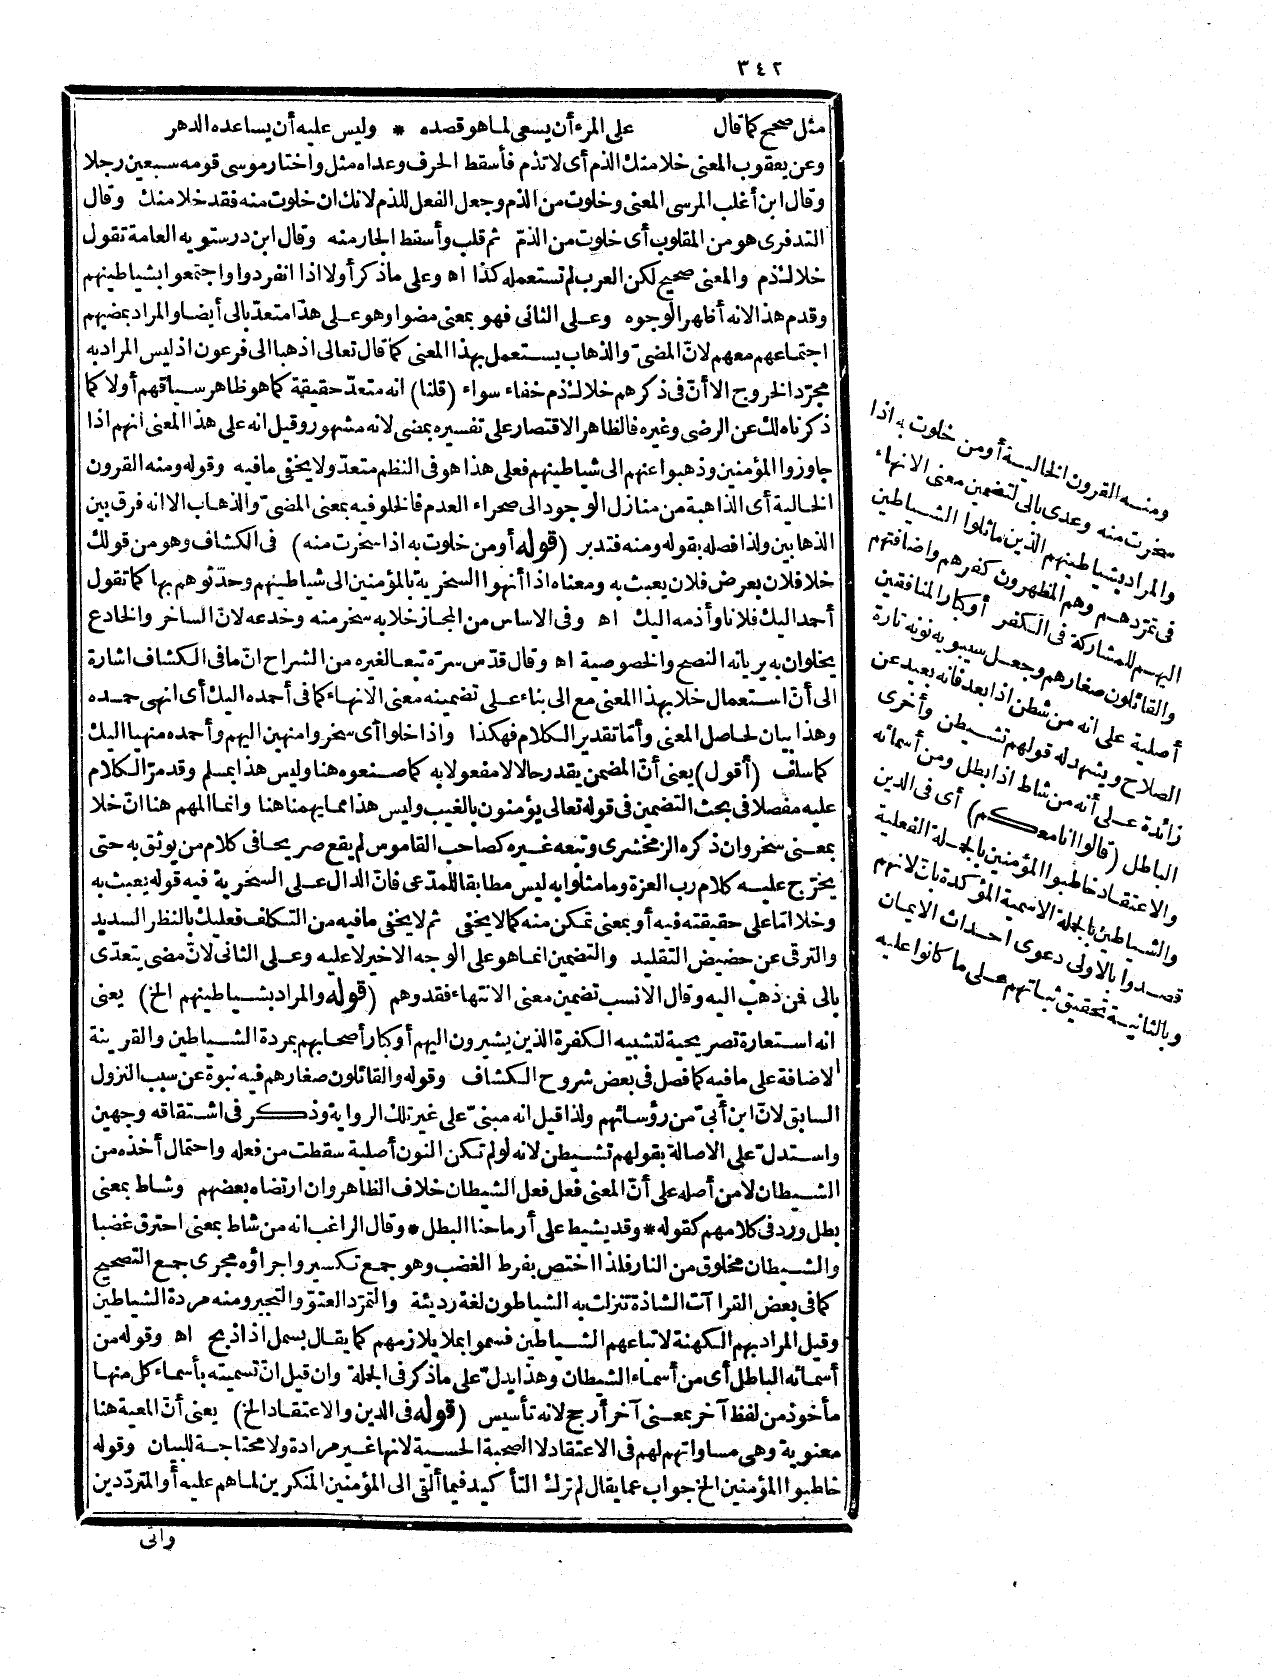 ٣٤٢
مثل صحيح كما قال على المرء أن يسعى لما هو قصده * وليس عليه أن يساعده الدهر
وعن يعقوب المعنى خلا منك الذم أى لا تذم فأسقط الحرف وعداه مثل واختار موسى قومه سبعين رجلا
وقال ابن أغلب المرسى المعنى وخلوت من الذم وجعل الفعل للذم لانك ان خلوت منه فقد خلا منك وقال
التدفرى هو من المقلوب أى خلوت من الذم ثم قلب وأسقط الجار منه وقال ابن درستويه العامة تقول
خلاك ذم والمعنى صحيح لكن العرب لم تستعمله كذا اه وعلى ما ذكر أولا اذا انفردوا واجتمعوا بشياطينهم
وقدم هذا لانه أظهر الوجوه وعلى الثانى فهو بمعنى مضوا وهو على هذا متعد بالى أيضا والمراد بمضيهم
اجتماعهم معهم لان المضىّ والذهاب يستعمل بهذا المعنى كما قال تعالى اذهبا الى فرعون اذ ليس المراد به
مجرّد الخروج الا أنّ فى ذكرهم خلاك ذم خفاء سواء (قلنا) انه متعدّ حقيقة كما هو ظاهر سياقهم أولا كما
ذكرناه لك عن الرضى وغيره فالظاهر الاقتصار على تفسيره بمضى لانه مشهور وقيل انه على هذا المعنى انهم اذا
جاوزوا المؤمنين وذهبوا عنهم الى شياطينهم فعلى هذا هو فى النظم متعدّ ولا يخفى ما فيه وقوله ومنه القرون
الخالية أى الذاهبة من منازل الوجود الى صحراء العدم فالخلو فيه بمعنى المضىّ والذهاب الا انه فرق بين
الذهابين ولذا فصله بقوله ومنه فتدبر (قوله أو من خلوت به اذا سخرت منه) فى الكشاف وهو من قولك
خلا فلان بعرض فلان يعبث به ومعناه اذا أنهوا السخرية بالمؤمنين الى شياطينهم وحدّثوهم بها كما تقول
أحمد اليك فلانا وأذمه اليك اه وفى الاساس من المجاز خلا به سخر منه وخدعه لان الساخر والخادع
يخلوان به يريانه النصح والخصوصية اه وقال قدّس سرّه تبعا لغيره من الشراح انّ ما فى الكشاف اشارة
الى أنّ استعمال خلا بهذا المعنى مع الى بناء على تضمينه معنى الانهاء كما فى أحمده اليك أى انهى حمده
وهذا بيان لحاصل المعنى وأمّا تقدير الكلام فهكذا واذا خلوا أى سخروا منهين اليهم وأحمده منهيا اليك
كما سلف (أقول) يعنى أنّ المضمن يقدر حالا لا مفعولا به كما صنعوه هنا وليس هذا بمسلم وقد مرّ الكلام
عليه مفصلا فى بحث التضمين فى قوله تعالى يؤمنون بالغيب وليس هذا مما يهمنا هنا وانما المهم هنا انّ خلا
بمعنى سخر وان ذكره الزمخشرى وتبعه غيره كصاحب القاموس لم يقع صريحا فى كلام من يوثق به حتى
يخرّج عليه كلام رب العزة وما مثلوا به ليس مطابقا للمدّعى فانّ الدال على السخرية فيه قوله يعبث به
وخلا امّا على حقيقته فيه أو بمعنى تمكن منه كما لا يخفى ثم لا يخفى ما فيه من التكلف فعليك بالنظر السديد
والترقى عن حضيض التقليد والتضمين انما هو على الوجه الاخير لا عليه وعلى الثانى لانّ مضى يتعدّى
بالى فمن ذهب اليه وقال الانسب تضمين معنى الانتهاء فقد وهم (قوله والمراد بشياطينهم الخ) يعنى
انه استعارة تصريحية لتشبيه الكفرة الذين يشيرون اليهم أو كبار أصحابهم بمردة الشياطين والقرينة
الاضافة على ما فيه كما فصل فى بعض شروح الكشاف وقوله والقائلون صغارهم فيه نبوة عن سبب النزول
السابق لانّ ابن أبىّ من رؤسائهم ولذا قيل انه مبنىّ على غير تلك الرواية وذكر فى اشتقاقه وجهين
واستدلّ على الاصالة بقولهم تشيطن لانه لو لم تكن النون أصلية سقطت من فعله واحتمال أخذه من
الشيطان لا من أصله على أنّ المعنى فعل فعل الشيطان خلاف الظاهر وان ارتضاه بعضهم وشاط بمعنى
بطل ورد فى كلامهم كقوله * وقد يشيط على أرماحنا البطل * وقال الراغب انه من شاط بمعنى احترق غضبا
والشيطان مخلوق من النار فلذا اختص بفرط الغضب وهو جمع تكسير واجراؤه مجرى جمع التصحيح
كما فى بعض القراآت الشاذة تنزلت به الشياطون لغة رديئة والتمرّد العتوّ والتجبر ومنه مردة الشياطين
وقيل المراد بهم الكهنة لاتباعهم الشياطين فسموا بما يلازمهم كما يقال بسمل اذا ذبح اه وقوله من
أسمائه الباطل أى من أسماء الشيطان وهذا يدلّ على ما ذكر فى الجملة وان قيل انّ تسميته بأسماء كل منها
مأخوذ من لفظ آخر بمعنى آخر أرجح لانه تأسيس (قوله فى الدين والاعتقاد الخ) يعنى أنّ المعية هنا
معنوية وهى مساواتهم لهم فى الاعتقاد لا الصحبة الحسية لانها غير مرادة ولا محتاجة للبيان وقوله
خاطبوا المؤمنين الخ جواب عما يقال لم ترك التأكيد فيما ألقى الى المؤمنين المنكرين لما هم عليه أو المتردّدين
واتى
ومنه القرون الخالية أو من خلوت به اذا
سخرت منه وعدى بالى لتضمين معنى الانهاء
والمراد بشياطينهم الذين ماثلوا الشياطين
فى تمرّدهم وهم المظهرون كفرهم واضافتهم
اليهم للمشاركة فى الكفر أو كبار المنافقين
والقائلون صغارهم وجعل سيبويه نونه تارة
أصلية على انه من شطن اذا بعد فانه بعيد عن
الصلاح ويشهد له قولهم تشيطن وأخرى
زائدة على أنه من شاط اذا بطل ومن أسمائه
الباطل (قالوا انا معكم) أى فى الدين
والاعتقاد خاطبوا المؤمنين بالجملة الفعلية
والشياطين بالجملة الاسمية المؤكدة بانّ لانهم
قصدوا بالاولى دعوى احداث الايمان
وبالثانية تحقيق ثباتهم على ما كانوا عليه